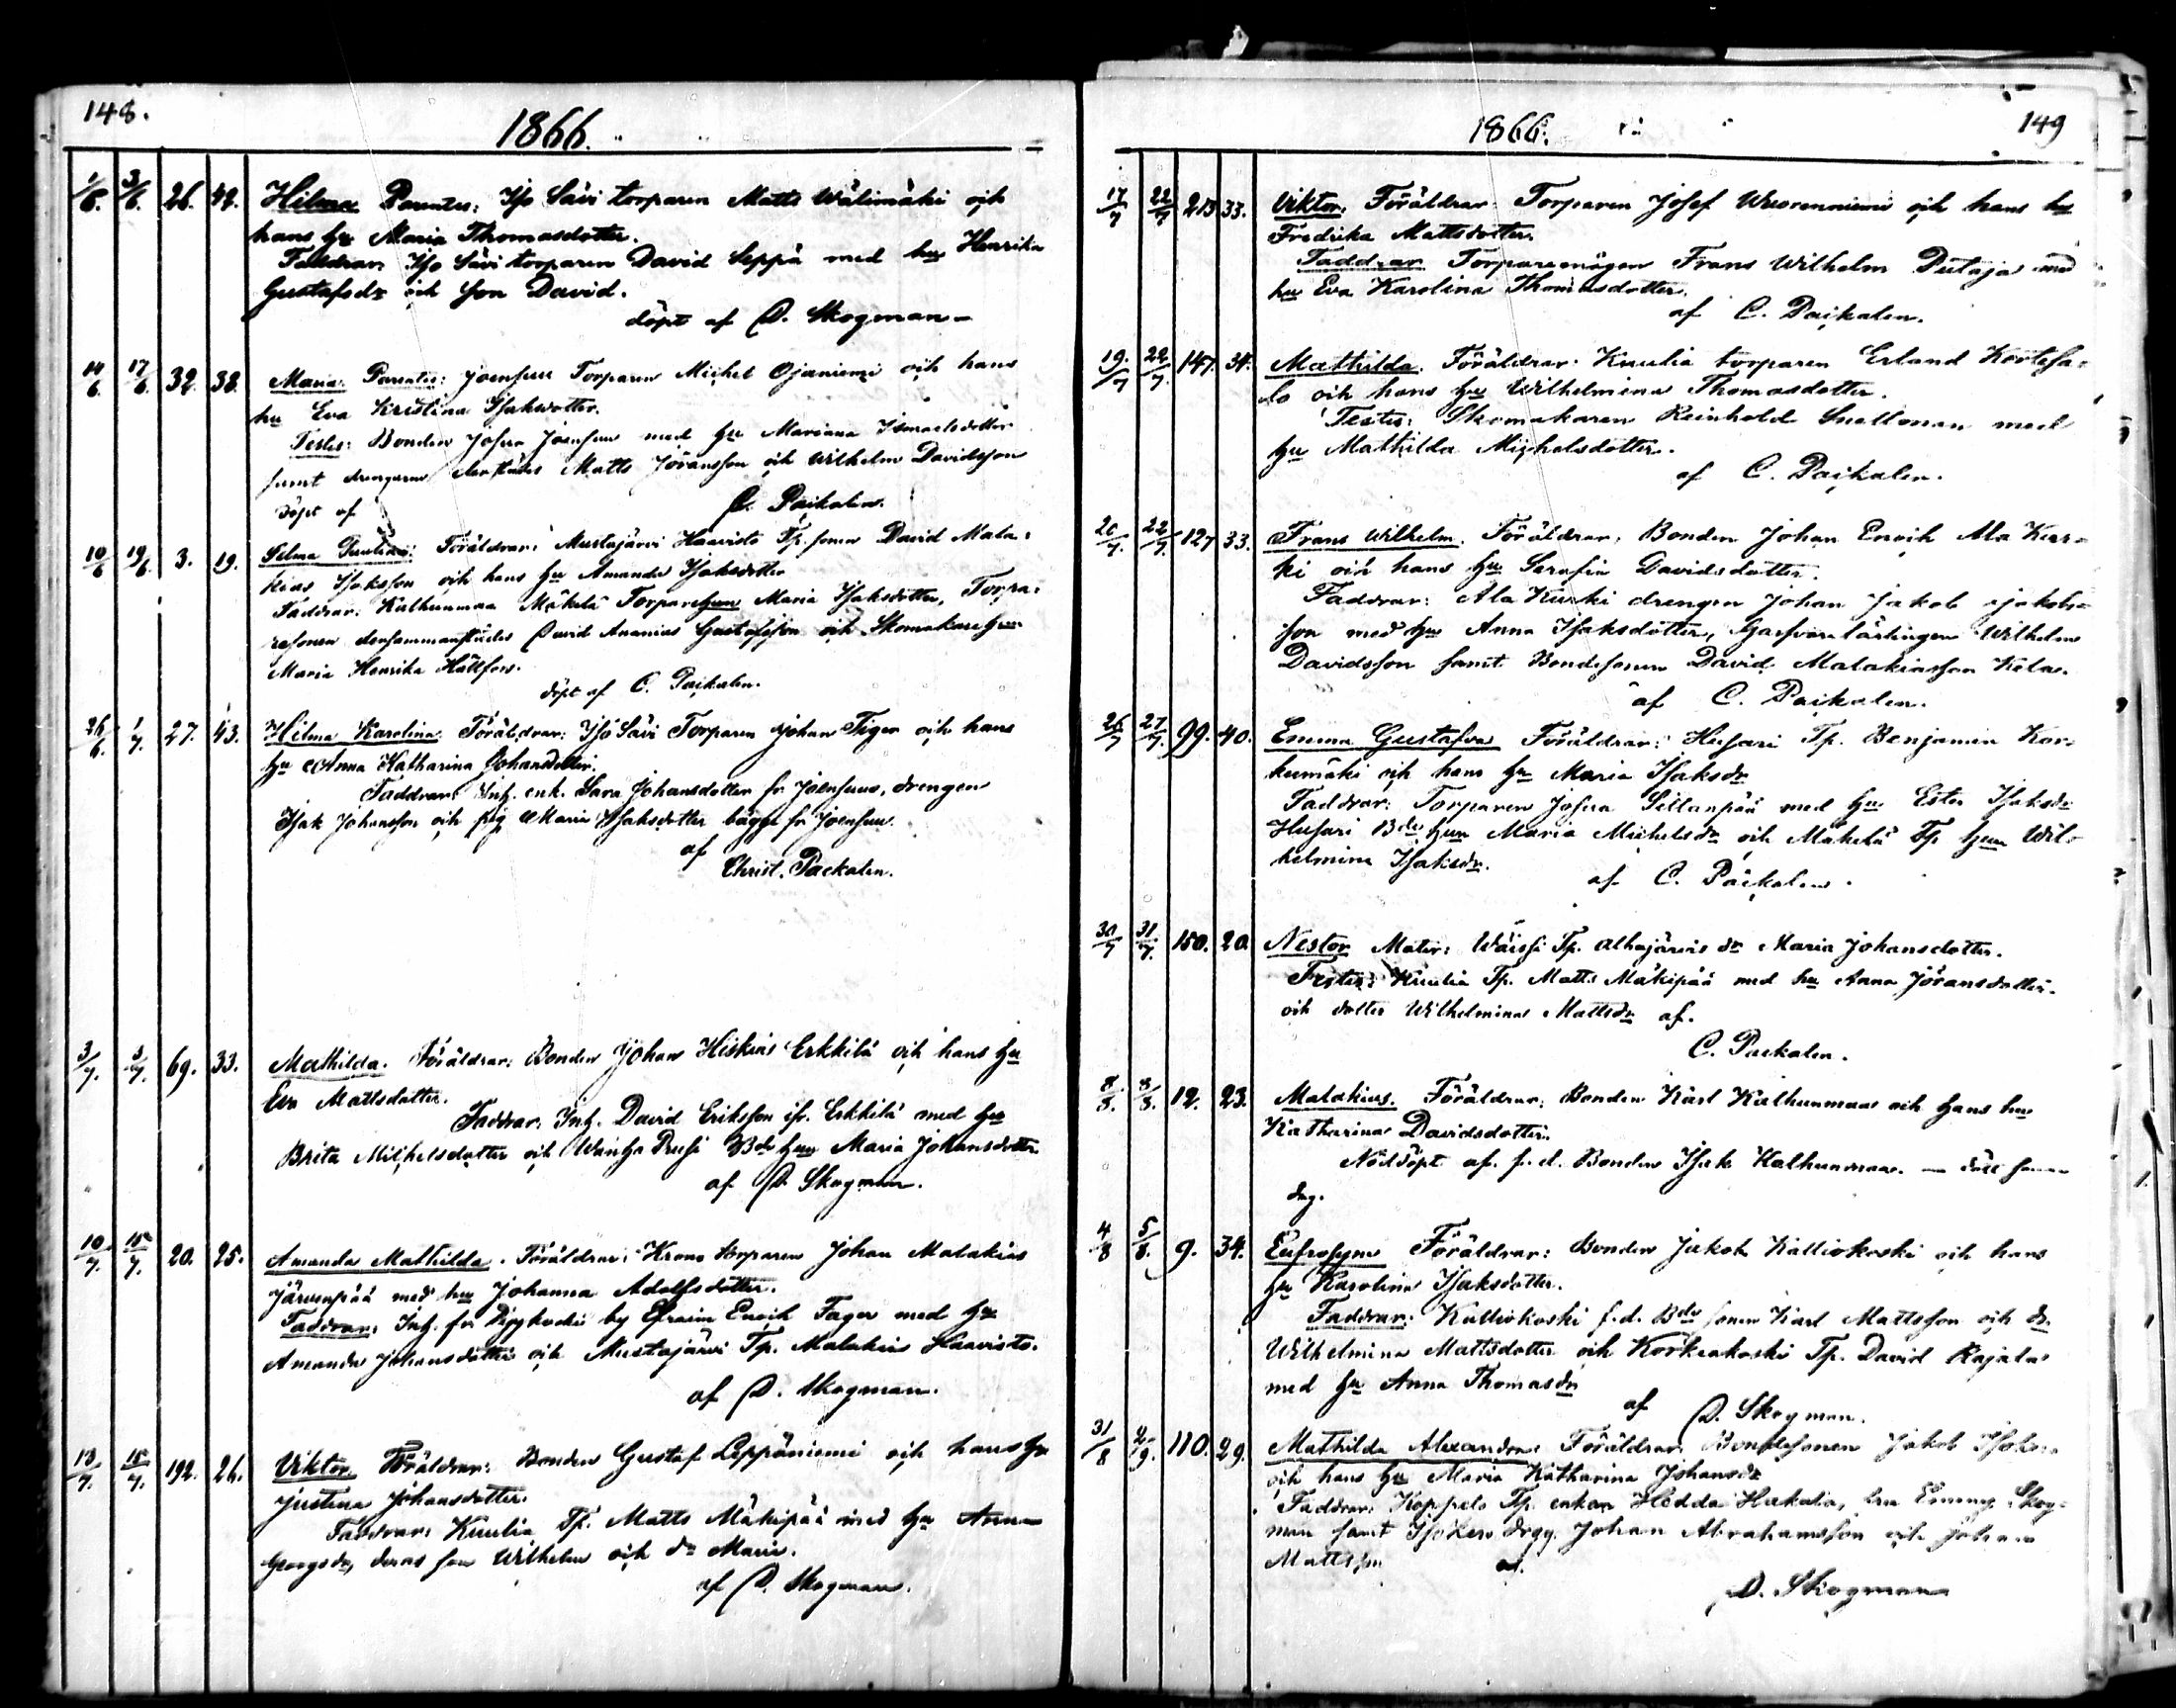 148.
1866.
1/6. 3/6. 26. 42. Hilma Parentes: Iso Sävi torparen Matts Wälimäki och
hans hu Maria Thomasdotter.
Faddrar: Iso Sävi torparen David Seppä med hu Henrika
Gustafsdr och son David.
döpt af D. Skogman
14/6. 17/6. 32. 38. Maria. Parentes: Joensuu Torparen Michel Ojaniemi och hans
hu Eva Kristina Isaksdotter.
Testes: Bonden Josua Joensuu med hu Mariana Ismaelsdotter
samt drengarne Matts Jöransson och Wilhelm Davidsson
döpt af C. Paçkalen.
10/6 19/6. 3. 19. Selma. Föräldrar: Mustajärvi Haavisto Tp. sonen David Mala-
kias Isaksson och hans hu Amanda Isaksdotter
Faddrar: Kalhunmaa Mäkelä Torparehun Maria Isaksdotter, Torpa-
resonen dersammanstädes David Ananias Gustafsson och Skomakare hu
Maria Henrika Hällfors.
döpt af C. Paçkalen.
26/6. 1/7. 27. 43. Hilma Karolina. Föräldrar: Iso Sävi Torparen Johan Tiger och hans
hu Anna Katharina Johansdotter.
Faddrar: Inh. enk. Sara Johansdotter fr. Joensuu, drengen
Isak Johansson och pig Maria Isaksdotter bägge fr Joensuu.
af
Christ. Packalen.
3/7. 3/7. 69. 33. Mathilda. Föräldrar: Bonden Johan Hiskias Erkkilä och hans hu
Eva Mattsdotter.
Faddrar: Inh. David Eriksson fr. Erkkilä med hu
Brita Michelsdotter och Wanha Prusi Bde hun Maria Johansdotter
af D. Skogman.
10/7. 15/7. 20. 25. Amanda Mathilda. Föräldrar: Krono torparen Johan Malakias
Järvenpää med hu Johanna Adolfsdotter.
Faddrar: Inh. fr by Efraim Enoch Fager med hu
Amanda Johansdotter och Mustajärvi Tp. Malakias Haavisto.
af D. Skogman.
13/7. 15/7. 192. 26. Viktor. Föräldrar: Bonden Gustaf Leppäniemi och hans hu
Justina Johansdotter.
Faddrar: Kuulia Tp. Matts Mäkipää med hu Anna
Georgsdr, deras son Wilhelm och dr Maria.
af D. Skogman.
1866. 149
17/7 22/7 213 33. Viktor. Föräldrar: Torparen Josef Wuorenniemi och hans hu
Fredrika Mattsdotter.
Faddrar Torparemågen Frans Wilhelm Putaja med
hu Eva Karolina Thomasdotter.
af C. Paçkalen.
19./7 22/7. 147. 34. Mathilda. Föräldrar: Kuulia torparen Erland Kortesa-
lo och hans hu Wilhelmina Thomasdotter.
Testes: Skomakaren Reinhold Snellman med
hu Mathilda Michelsdotter.
af C. Paçkalen.
20/7. 22/7 127 33. Frans Wilhelm. Föräldrar: Bonden Johan Enoch Ala Kur-
ki och hans hu Serafia Davidsdotter.
Faddrar: Ala Kurki drengen Johan Jakob Jakobs-
son med hu Anna Isaksdotter, Garfvarelärlingen Wilhelm
Davidsson samt Bondesonen David Malakiasson Kela.
af C. Paçkalen.
26/7 27/7. 99. 40. Emma Gustafva Föräldrar: Husari Tp. Benjamin Kor-
kumäki och hans hu Maria Isaksdr
Faddrar: Torparen Josua Sillanpää med hu Ester Isaksdr
Husari Bde hun Maria Michelsdr och Mäkelä Tp hun Wil-
helmina Isaksdr.
af C. Paçkalen.
30/7 31/7. 150. 20. Nestor Mater: Wäissi Tp. Alhajärvis dr Maria Johansdotter.
Testes: Kuulia Tp. Matts Mäkipää med hu Anna Jöransdotter
och dotter Wilhelmina Mattsdr af.
C. Packalen.
8/8. 8/8. 12. 23. Malakias. Föräldrar: Bonden Karl Kalhunmaa och hans hu
Katharina Davidsdotter.
Nöddöpt af f. d. Bonden Isak Kalhunmaa. — död samma
dag.
4/8 5/8. 9. 34. Eufrosyne Föräldrar: Bonden Jakob Kalliokoski och hans
hu Karolina Isaksdotter.
Faddrar: Kalliokoski f. d. Bde sonen Karl Mattsson och dr
Wilhelmina Mattsdotter och Korkeakoski Tp. David Rajala
med hu Anna Thomasdr
af D. Skogman.
31/8 2/9. 110. 29. Mathilda Alexandra. Föräldrar: Bondesonen Jakob
och hans hu Maria Katharina Johansdr
Faddrar: Koppelo Tp. enkan Hedda Hakalia, Emmy Skog-
man samt drgg. Johan Abrahamsson och Johan
Mattsson af.
D. Skogman